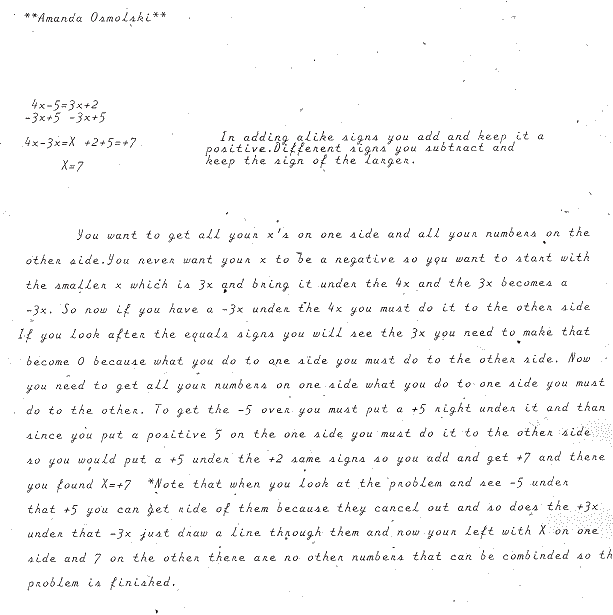 **Amanda Osmolski**
4x-5=3x+2
-3x+5 -3x+5
4x-3x=X +2+5=+7
X=7
In adding alike signs you add and keep it a
positive.Different signs you subtract and
keep the sign of the larger.
You want to get all your x's on one side and all your numbers on the
other side.You never want your x to be a negative so you want to start with
the smaller x which is 3x and bring it under the 4x and the 3x becomes a
-3x. So now if you have a -3x under the 4x you must do it to the other side
If you look after the equals signs you will see the 3x you need to make that
become 0 because what you do to one side you must do to the other side. Now
you need to get all your numbers on one side what you do to one side you must
do to the other. To get the -5 over you must put a +5 right under it and than
since you put a positive 5 on the one side you must do it to the other side
so you would put a +5 under the +2 same signs so you add and get +7 and there
you found X=+7 *Note that when you look at the problem and see -5 under
that +5 you can get ride of them because they cancel out and so does the +3x
under that -3x just draw a line through them and now your left with X on one
side and 7 on the other there are no other numbers that can be combinded so th
problem is finished.